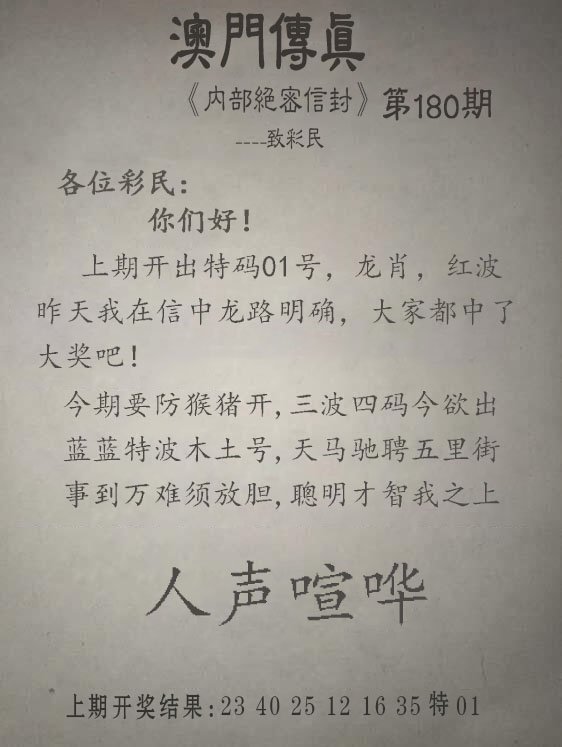 澳門傳真
《内部絕密信封》第180期
----致彩民
各位彩民:
你们好!
上期开出特码01号，龙肖，红波
昨天我在信中龙路明确，大家都中了
大奖吧!
今期要防猴猪开,三波四码今欲出
蓝蓝特波木土号,天马驰聘五里街
事到万难须放胆,聰明才智我之上
人声喧哗
上期开奖结果:23 40 25 12 16 35特01